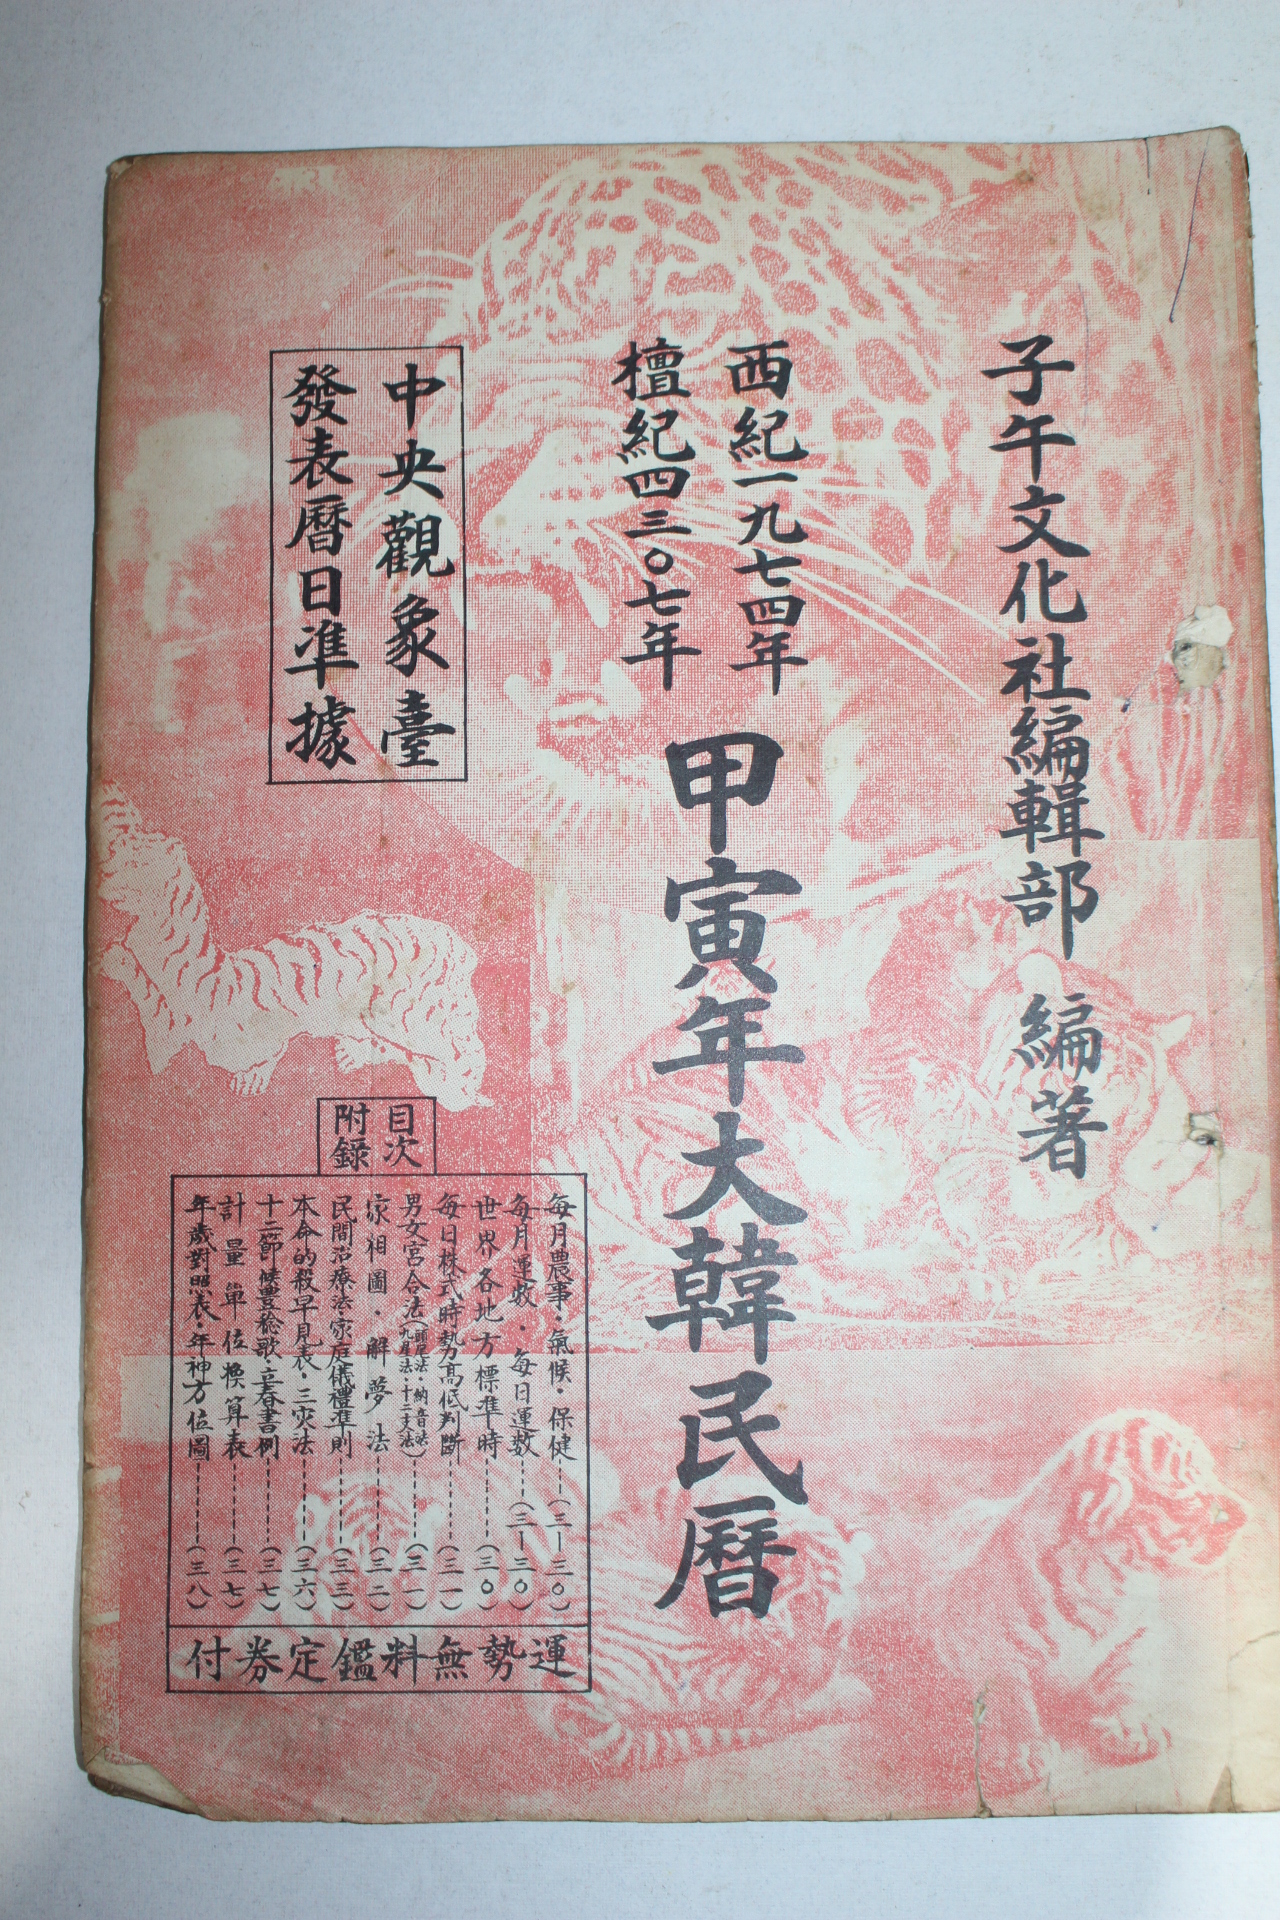 子午文化社編輯部 編著
西紀一九七四年
檀紀四三〇七年
甲寅年大韓民曆
中央觀象臺
發表曆日準據
目次
附錄
每月農事·氣候·保健------(三—三〇)
每月運數·每日運數------(三—三〇)
世界各地方標準時------(三〇)
每日株式時勢高低判斷------(三一)
男女宮合法(頭尾法·納音法·九星法·十二支法)------(三一)
家相圖·解夢法------(三二)
民間治療法·家庭儀禮準則------(三三)
本命的殺早見表·三灾法------(三六)
十二節候豊稔歌·立春書例------(三七)
計量單位換算表------(三七)
年歲對照表·年神方位圖------(三八)
運勢無料鑑定券付